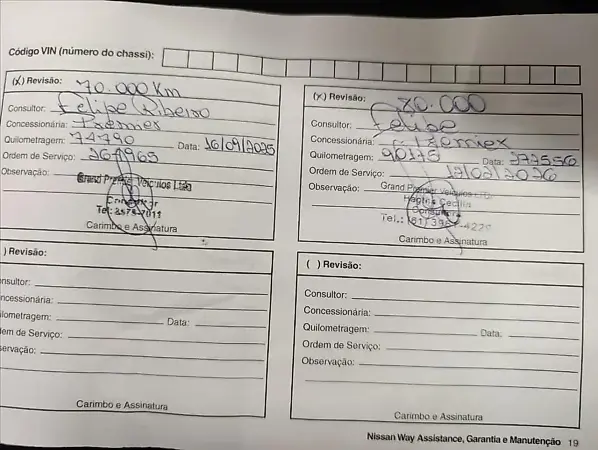 Código VIN (número do chassi):
(X) Revisão: 70.000 Km
Consultor: Felipe Ribeiro
Concessionária: Premier
Quilometragem: 74790 Data: 16/09/2025
Ordem de Serviço: 261963
Observação:
Grand Premier Veículos Ltda
Tel: 3575-7011
Carimbo e Assinatura
(X) Revisão: 80.000
Consultor: Felipe
Concessionária: Premier
Quilometragem: 90125 Data: 277556
Ordem de Serviço: 12/02/2026
Observação:
Grand Premier Veículos LTDA
Consultora
Tel.: (61)
Carimbo e Assinatura
) Revisão:
nsultor:
ncessionária:
ilometragem: Data:
em de Serviço:
ervação:
Carimbo e Assinatura
( ) Revisão:
Consultor:
Concessionária:
Quilometragem: Data:
Ordem de Serviço:
Observação:
Carimbo e Assinatura
Nissan Way Assistance, Garantia e Manutenção 19